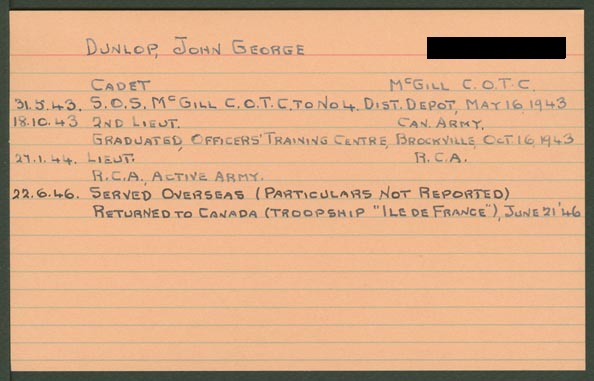 DUNLOP, JOHN GEORGE
CADET McGILL C.O.T.C.
31.5.43. S.O.S. McGILL C.O.T.C. TO No 4. DIST. DEPOT, MAY 16, 1943
18.10.43 2ND LIEUT. CAN. ARMY.
GRADUATED, OFFICERS' TRAINING CENTRE, BROCKVILLE, OCT. 16, 1943
27.1.44. LIEUT. R.C.A.
R.C.A., ACTIVE ARMY.
22.6.46. SERVED OVERSEAS (PARTICULARS NOT REPORTED)
RETURNED TO CANADA (TROOPSHIP "ILE DE FRANCE"), JUNE 21 '46